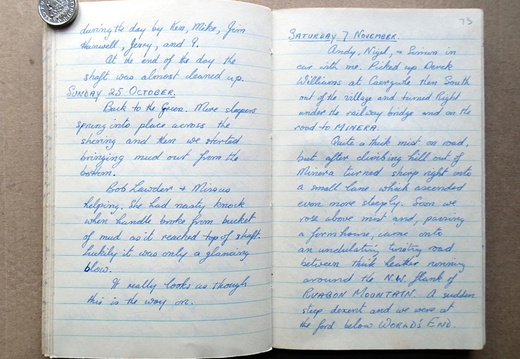 during the day by Ken, Mike, Jim
Hanwell, Jerry, and I.
At the end of the day the
shaft was almost cleaned up.
SUNDAY 25 OCTOBER.
Back to the Green. More sleepers
sprung into place across the
shoring and then we started
bringing mud out from the
bottom.
Bob Lawder + Missus
helping. She had nasty knock
when handle broke from bucket
of mud as it reached top of shaft.
Luckily it was only a glancing
blow.
It really looks as though
this is the way on.
73
SATURDAY 7 NOVEMBER.
Andy, Nigel, + Simon in
car with me. Picked up Derek
Williams at Caergwle then South
out of the village and turned Right
under the railway bridge and on the
road to MINERA.
Quite a thick mist on road,
but after climbing hill out of
Minera turned sharp right onto
a small lane which ascended
even more steeply. Soon we
rose above mist and, passing
a farmhouse, came onto
an undulating, twisting road
between thick heather running
around the N.W. flank of
RUABON MOUNTAIN. A sudden
steep descent and we were at
the ford below WORLD'S END.